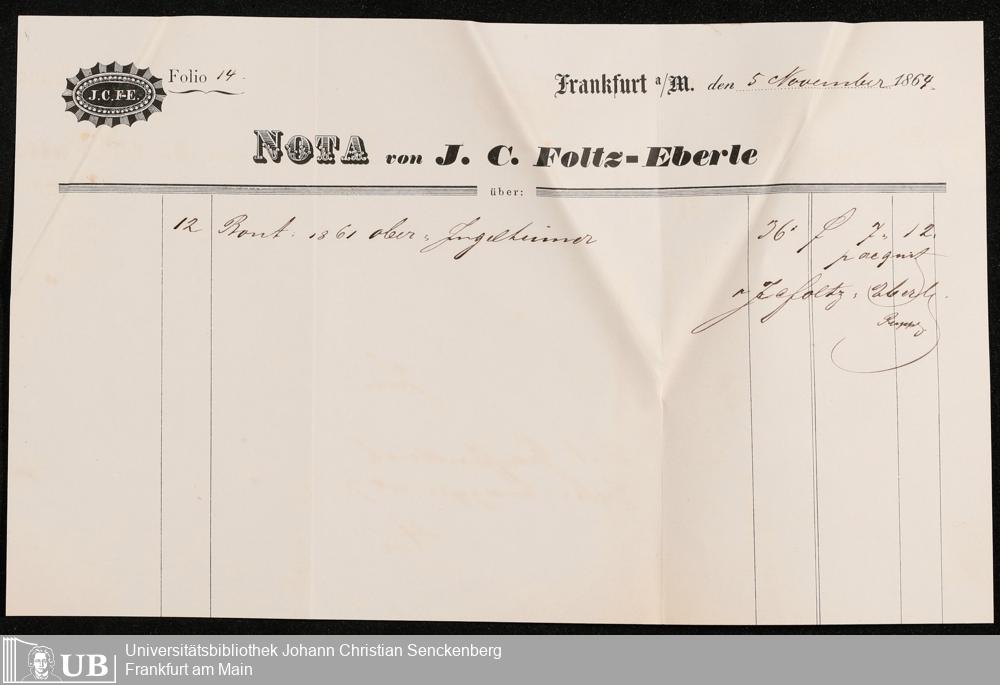 J.C.F-E.
Folio 14.
Frankfurt a/M. den 5 November 1864.
NOTA von J. C. Foltz-Eberle
über:
12 Bout. 1861 ober-Ingelheimer 36. f 7. 12.
p acquit
Foltz-Eberle
Universitätsbibliothek Johann Christian Senckenberg
Frankfurt am Main
UB